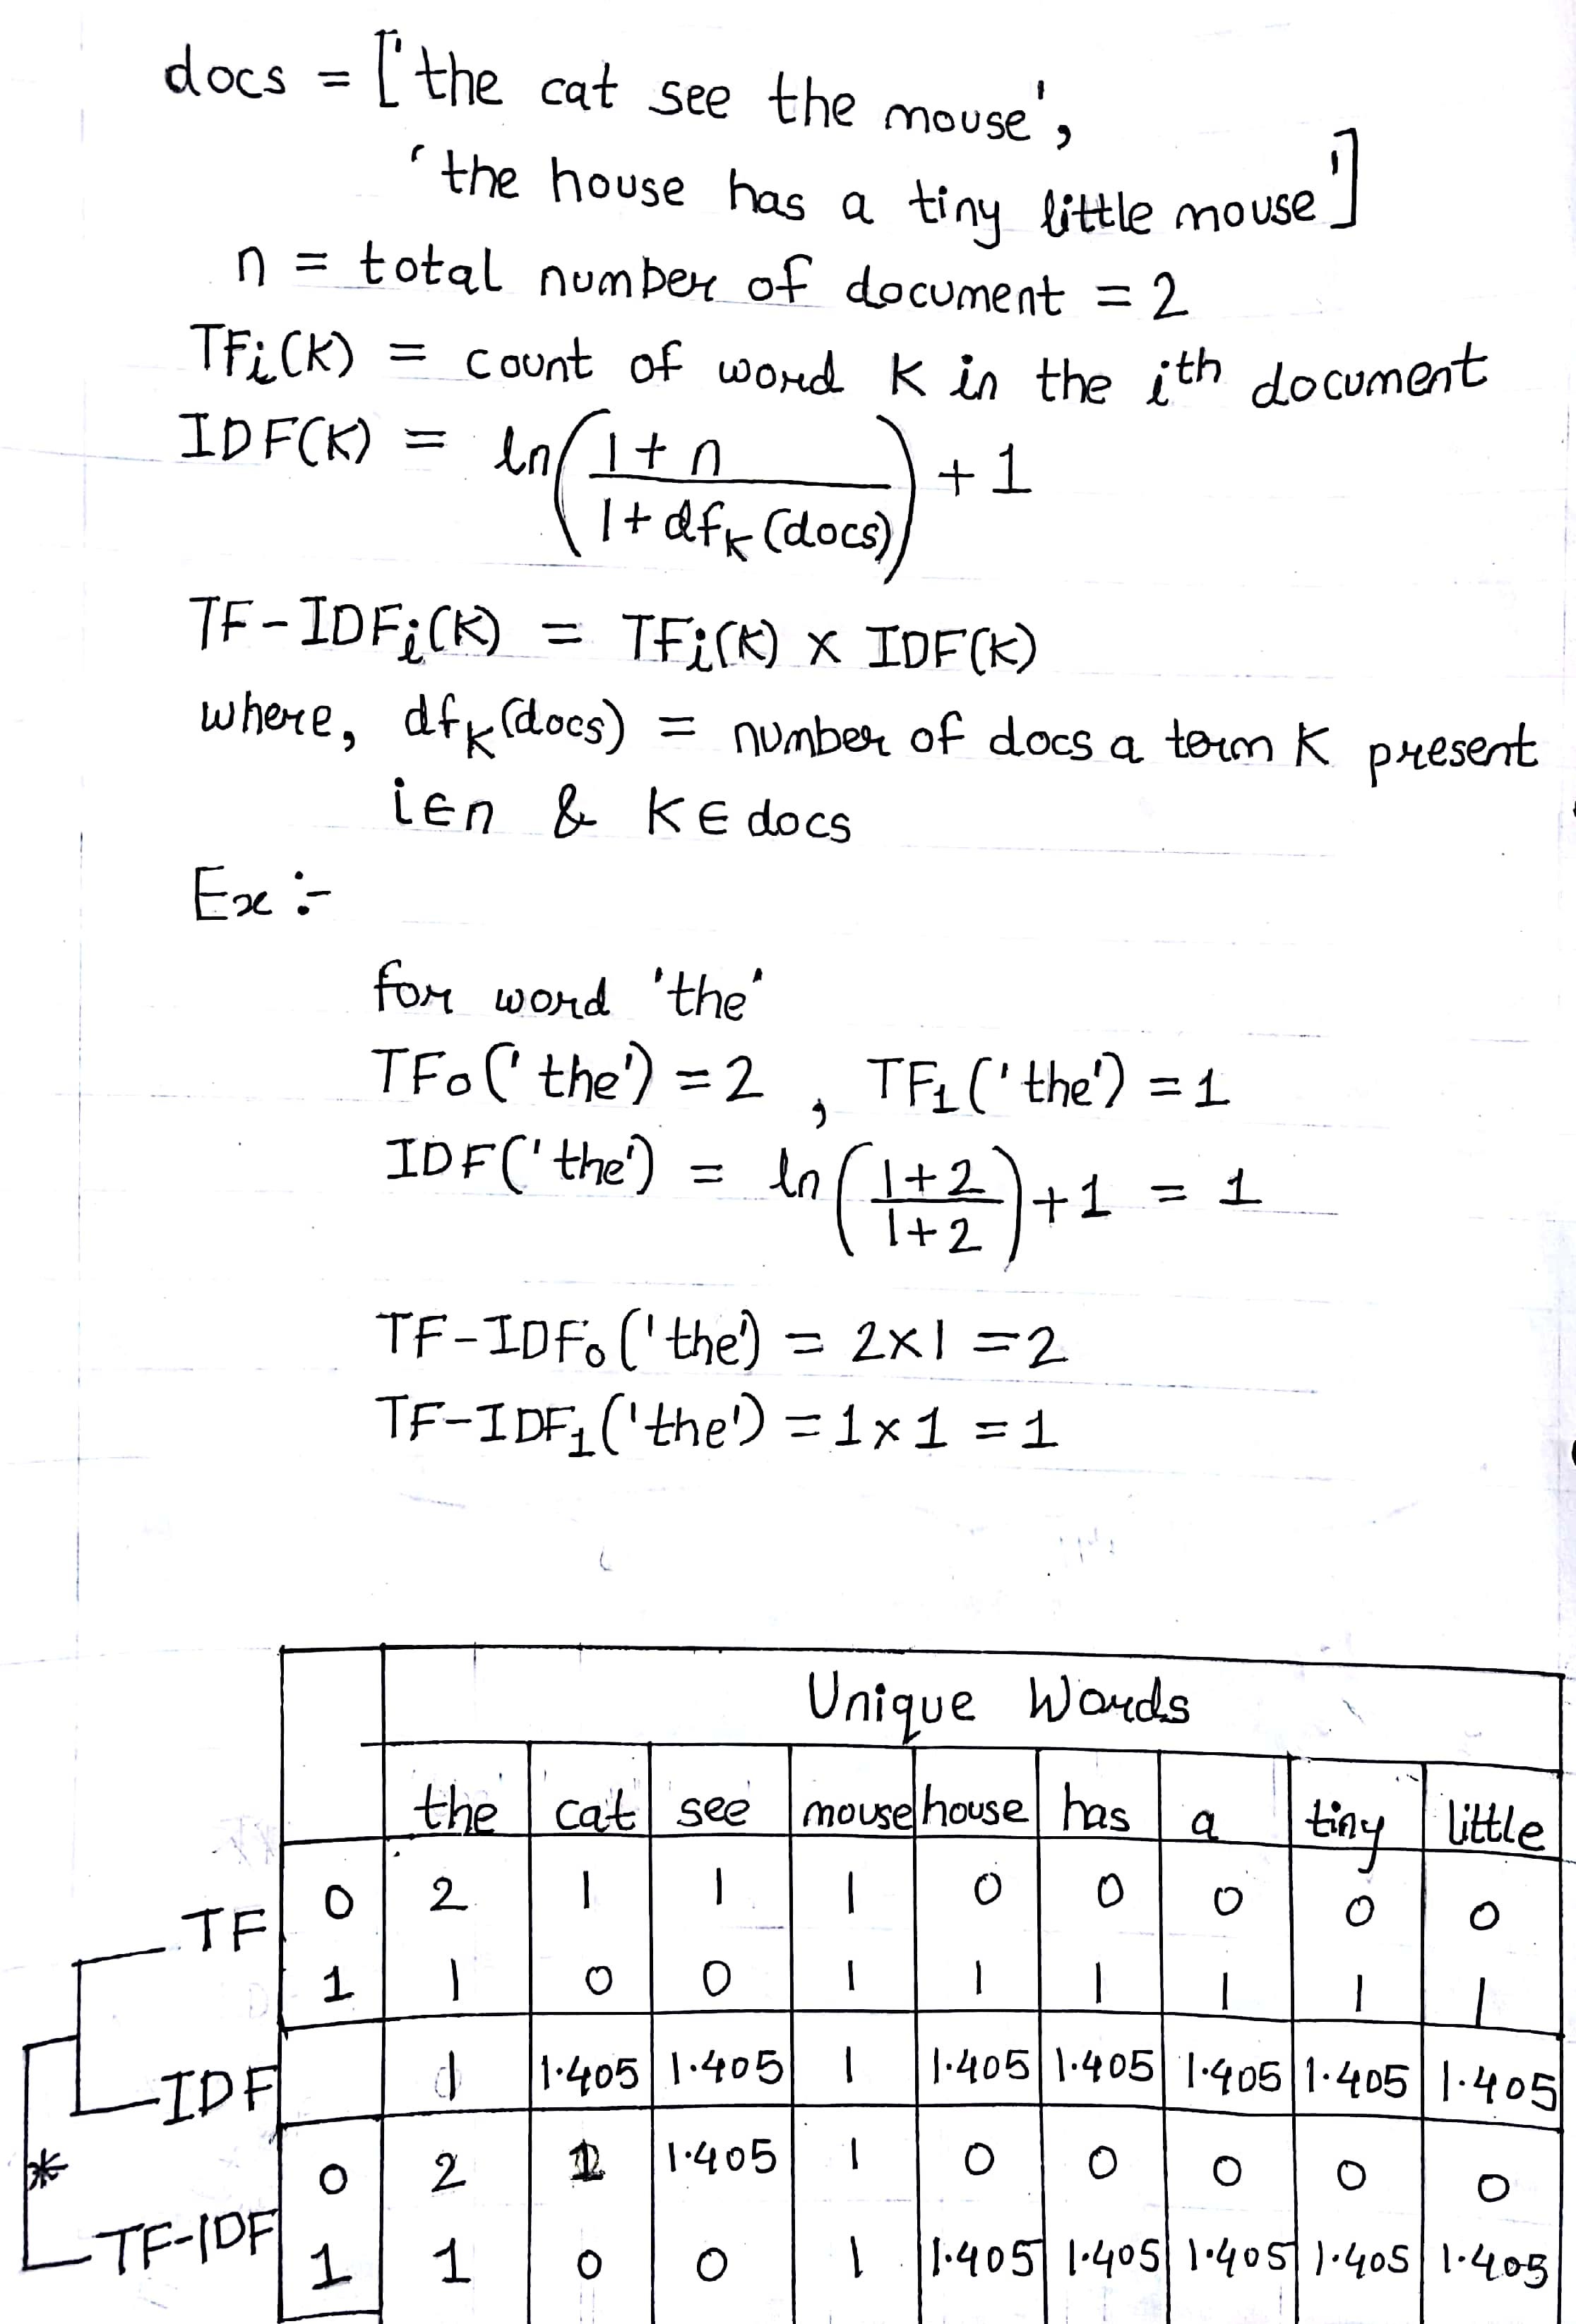 docs = ['the cat see the mouse',
'the house has a tiny little mouse']
n = total number of document = 2
TFi(K) = count of word K in the ith document
IDF(K) = ln(1+n / 1+dfK(docs)) + 1
TF-IDFi(K) = TFi(K) x IDF(K)
where, dfK(docs) = number of docs a term K present
i∈n & K∈docs
Ex :-
for word 'the'
TF0('the') = 2 , TF1('the') = 1
IDF('the') = ln(1+2 / 1+2) + 1 = 1
TF-IDF0('the') = 2x1 = 2
TF-IDF1('the') = 1x1 = 1
Unique Words
the cat see mouse house has a tiny little
TF 0 2 1 1 1 0 0 0 0 0
1 1 0 0 1 1 1 1 1 1
IDF 1 1.405 1.405 1 1.405 1.405 1.405 1.405 1.405
* 0 2 1 1.405 1 0 0 0 0 0
TF-IDF 1 1 0 0 1 1.405 1.405 1.405 1.405 1.405